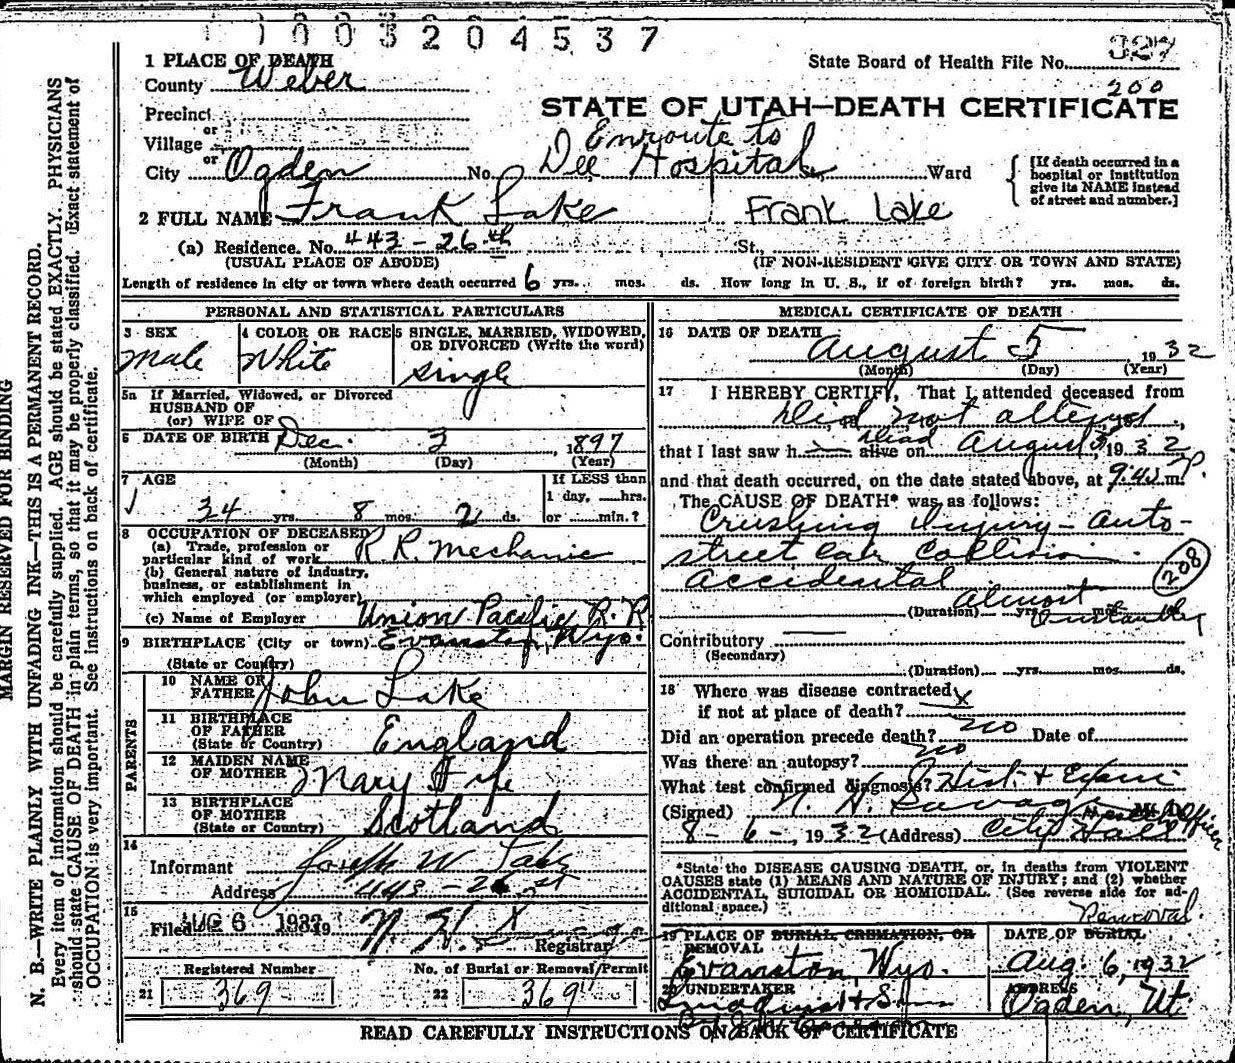 1003204537
1 PLACE OF DEATH
State Board of Health File No. 327
County Weber
200
STATE OF UTAH—DEATH CERTIFICATE
Precinct
or
Village
or
Enroute to
City Ogden No. Dee Hospital Ward
[If death occurred in a hospital or institution give its NAME instead of street and number.]
2 FULL NAME Frank Lake Frank Lake
(a) Residence. No. 443 - 26th St.
(USUAL PLACE OF ABODE) (IF NON-RESIDENT GIVE CITY OR TOWN AND STATE)
Length of residence in city or town where death occurred 6 yrs. mos. ds. How long in U. S., if of foreign birth? yrs. mos. ds.
PERSONAL AND STATISTICAL PARTICULARS
3 SEX
Male
4 COLOR OR RACE
White
5 SINGLE, MARRIED, WIDOWED, OR DIVORCED (Write the word)
Single
5a If Married, Widowed, or Divorced
HUSBAND OF
(or) WIFE OF
6 DATE OF BIRTH Dec. 3, 1897
(Month) (Day) (Year)
7 AGE
34 yrs. 8 mos. 2 ds.
If LESS than
1 day, hrs.
or min.?
8 OCCUPATION OF DECEASED
(a) Trade, profession or
particular kind of work R. R. Mechanic
(b) General nature of industry,
business, or establishment in
which employed (or employer)
(c) Name of Employer Union Pacific R. R.
9 BIRTHPLACE (City or town) Evanston, Wyo.
(State or Country)
PARENTS
10 NAME OF
FATHER John Lake
11 BIRTHPLACE
OF FATHER England
(State or Country)
12 MAIDEN NAME
OF MOTHER Mary Fife
13 BIRTHPLACE
OF MOTHER Scotland
(State or Country)
14
Informant W Lake
Address
15
Filed AUG 6 1932 19 N. H.
Registrar
Registered Number
21 369
No. of Burial or Removal Permit
22 369
MEDICAL CERTIFICATE OF DEATH
16 DATE OF DEATH August 5, 1932
(Month) (Day) (Year)
17 I HEREBY CERTIFY, That I attended deceased from
Did not attend
that I last saw h alive on dead August 5 1932
and that death occurred, on the date stated above, at 9:40 P. m.
The CAUSE OF DEATH* was as follows:
Crushing Injury - Auto-
street car collision
accidental
208
almost
(Duration) yrs. mos. instantly
Contributory
(Secondary)
(Duration) yrs. mos. ds.
18 Where was disease contracted
if not at place of death? x
Did an operation precede death? no Date of
Was there an autopsy? no
What test confirmed diagnosis? Hist. + Exam
(Signed) N. H. Savage Health Officer
8-6-, 1932 (Address) City Hall
*State the DISEASE CAUSING DEATH, or, in deaths from VIOLENT
CAUSES state (1) MEANS AND NATURE OF INJURY; and (2) whether
ACCIDENTAL, SUICIDAL OR HOMICIDAL. (See reverse side for additional space.)
Removal
19 PLACE OF BURIAL, CREMATION, OR
REMOVAL
Evanston, Wyo.
DATE OF BURIAL
Aug. 6, 1932
20 UNDERTAKER
ADDRESS
Ogden, Ut
READ CAREFULLY INSTRUCTIONS ON BACK OF CERTIFICATE
MARGIN RESERVED FOR BINDING
N. B.—WRITE PLAINLY WITH UNFADING INK—THIS IS A PERMANENT RECORD.
Every item of information should be carefully supplied. AGE should be stated EXACTLY. PHYSICIANS
should state CAUSE OF DEATH in plain terms, so that it may be properly classified. Exact statement of
OCCUPATION is very important. See instructions on back of certificate.